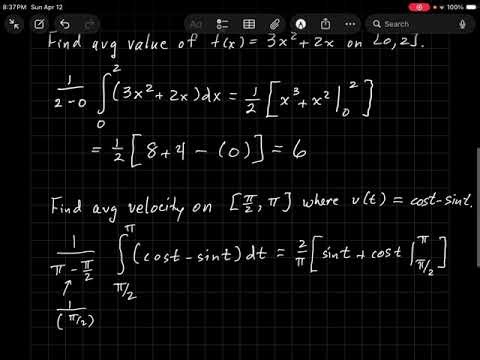 8:37PM Sun Apr 12
100%
Aa
Search
Find avg value of f(x) = 3x² + 2x on [0,2].
1/(2-0) ∫₀² (3x² + 2x) dx = 1/2 [x³ + x² |₀²]
= 1/2 [8 + 4 - (0)] = 6
Find avg velocity on [π/2, π] where v(t) = cost - sint.
1/(π - π/2) ∫_{π/2}^{π} (cost - sint) dt = 2/π [sint + cost |_{π/2}^{π}]
1/(π/2)